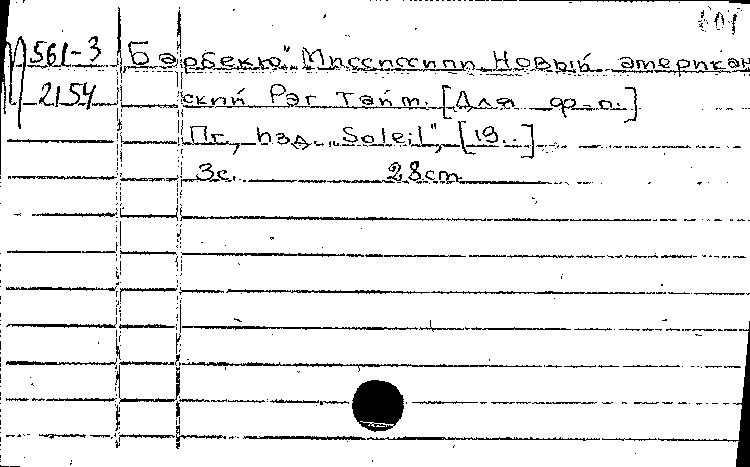 607
М 561-3
2154
„Барбекю" Миссисипи. Новый американ
ский Рэг Тайм. [Для ф-п.]
Пг, изд. „Soleil", [19..]
3с. 28cm